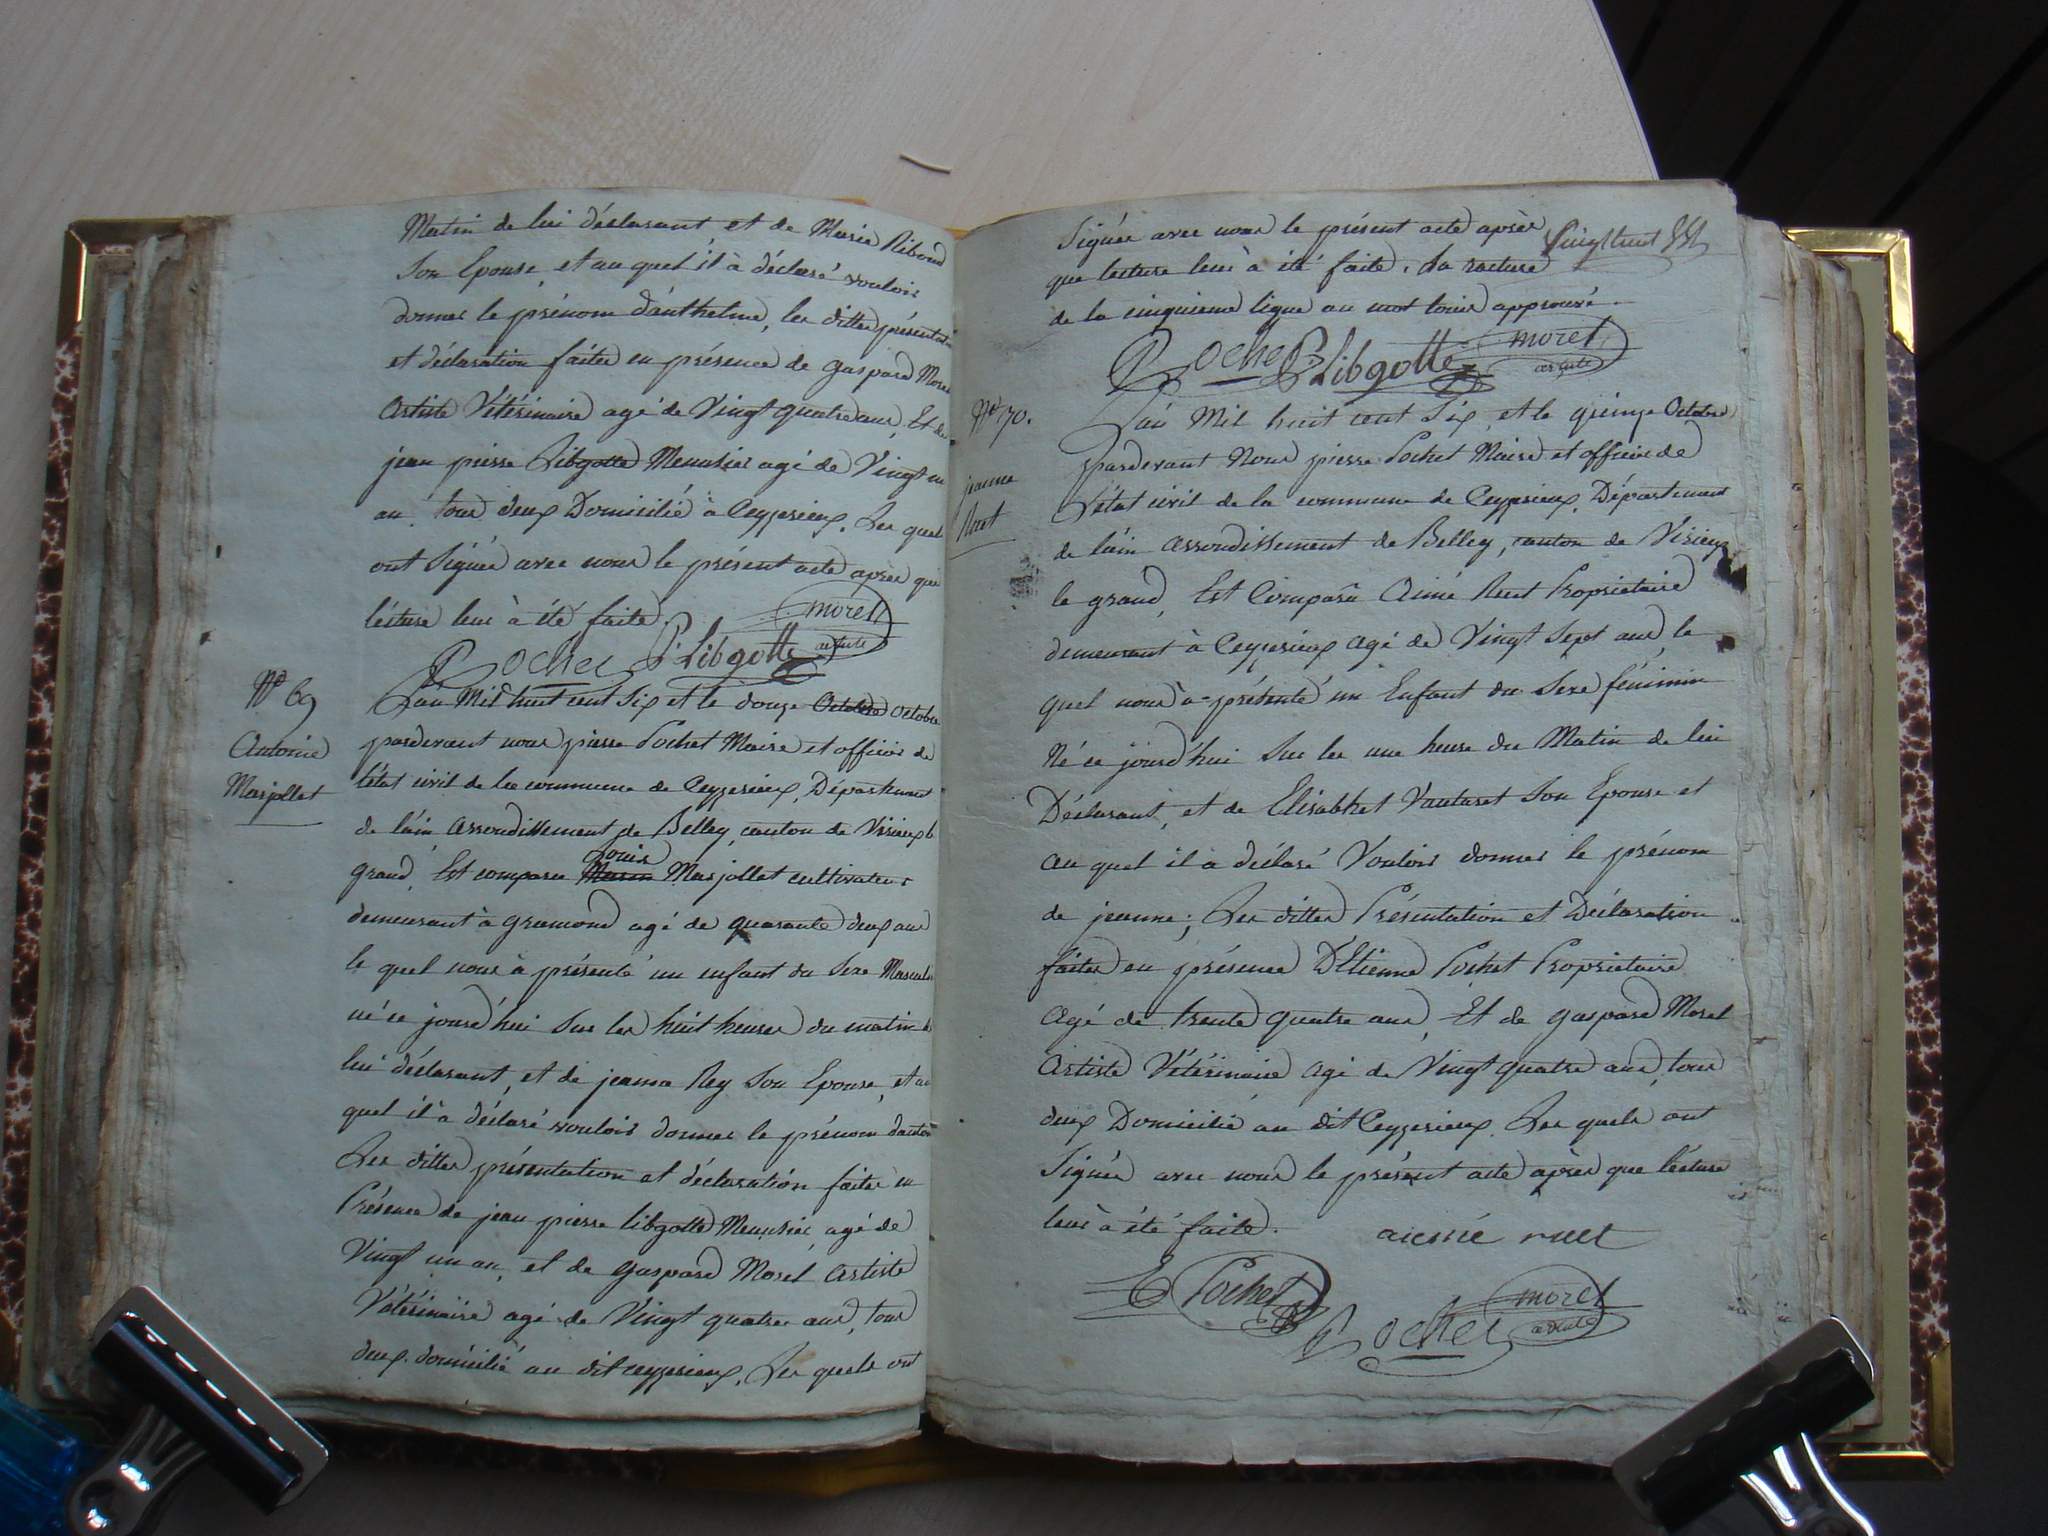 Matin de lui déclarant et de Marie Riboud
Son Epouse, et au quel il à déclaré vouloir
donner le prénom d'anthelme, les dittes présentation
et déclaration faites en présence de gaspard Morel
Artiste Vétérinaire agé de Vingt quatre ans, Et de
jean pierre Libgotte Menusier agé de Vingt un
an, tous deux Domicilié à Ceyzerieux, Les quels
ont Signés avec nous le présent acte après que
lecture leur à été faite.
morel
artiste
Pochet P. Libgotte
N° 69
Antoine
Marjollet
L'an Mil huit cent Six et le douze Octobre Octobre
pardevant nous pierre Pochet Maire et officier de
l'état civil de la commune de Ceyzerieux, Département
de l'ain arrondissement de Belley, canton de Virieux le
Louis
grand, Est comparu Marjollet cultivateur
demeurant à gramond agé de quarante deux ans
le quel nous à présenté un enfant du Sexe Masculin
né ce jourd'hui Sur les huit heures du matin de
lui déclarant, et de jeanne Rey Son Epouse, et au
quel il à déclaré vouloir donner le prénom d'antoine
Les dittes présentation et déclaration faites en
Présence de jean pierre libgotte Menusier, agé de
Vingt un an, et de gaspard Morel Artiste
Vétérinaire agé de Vingt quatre ans, tous
deux domicilié au dit ceyzerieux, Les quels ont
Signés avec nous le présent acte après
que lecture leur à été faite. La racture
de la cinquieme ligne au mot louis approuvé.
Pochet P. Libgotte morel
artiste
N° 70.
jeanne
Ruet
L'an Mil huit cent Six, et le quinze Octobre
pardevant Nous pierre Pochet Maire et officier de
L'état civil de la commune de Ceyzerieux, Département
de l'ain arrondissement de Belley, canton de Virieux
le grand, Est Comparu Aimé Ruet Propriétaire
demeurant à Ceyzerieux agé de Vingt Sept ans, le
quel nous à présenté un Enfant du Sexe féminin
Né ce jourd'hui Sur les une heure du Matin de lui
Déclarant, et de Elisabhet Vautaret Son Epouse et
au quel il à déclaré Vouloir donner le prénom
de jeanne; Les dittes Présentation et Déclaration
faites en présence D'Etienne Pochet Propriétaire
Agé de trente quatre ans, Et de gaspard Morel
Artiste Vétérinaire agé de Vingt quatre ans, tous
deux Domicilié au dit Ceyzerieux. Les quels ont
Signés avec nous le présent acte après que lecture
leur à été faite.
aiemé ruet
E Pochet
Pochet morel
artiste